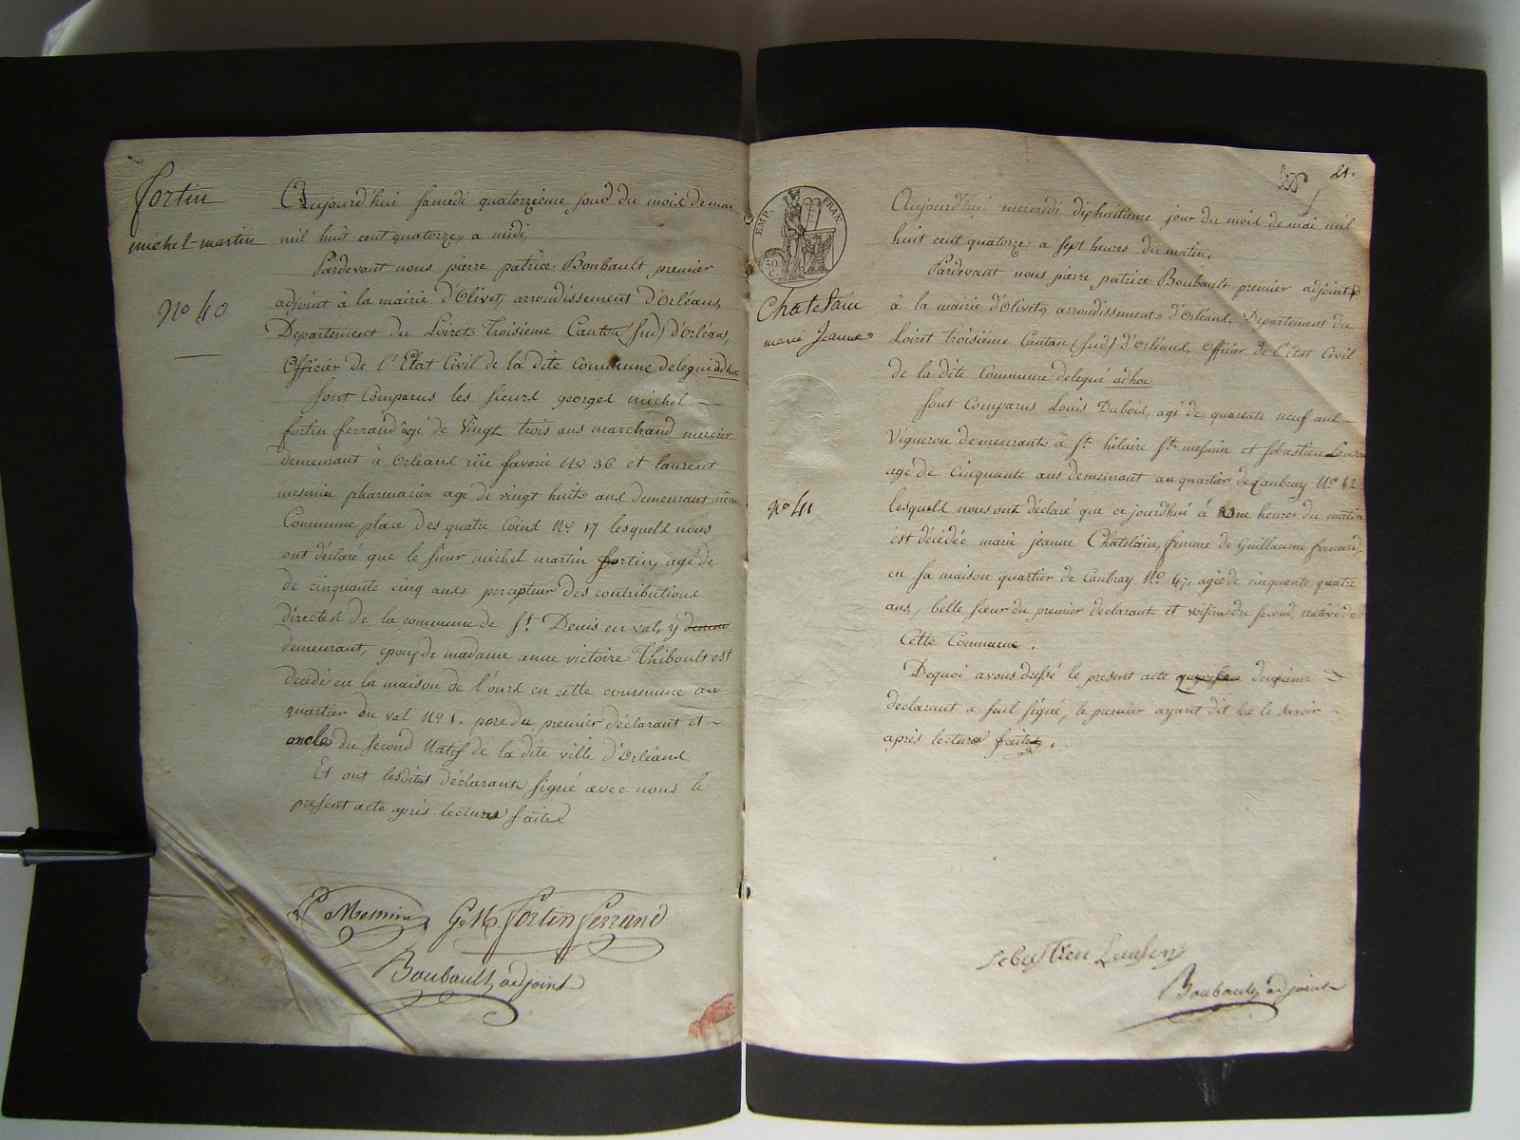 fortin
michel-martin
No 40
Aujourd'hui samedi quatorzieme jour du mois de mai
mil huit cent quatorze, a midi,
Pardevant nous pierre patrice Boubault premier
adjoint à la mairie d'Olivet, arrondissement d'Orléans,
Departement du Loiret troisieme Canton (sud) d'Orléans,
Officier de l'Etat Civil de la dite Commune delegué adhoc
sont Comparus les sieurs georges michel
fortin ferrand agé de vingt trois ans marchand mercier
demeurant à Orleans rüe favorie No 36 et laurent
mesmin pharmacien age de vingt huit ans demeurant même
Commune place des quatre Coins No. 17 lesquels nous
ont déclaré que le sieur michel martin fortin, agé de
de cinquante cinq ans percepteur des contributions
directes de la commune de St Denis en val, y
demeurant, epoux de madame anne victoire Thiboult est
décédé en la maison de l'ours en cette commune au
quartier du val No 1. pere du premier déclarant et
oncle du second Natif de la dite ville d'Orléans
Et ont lesdits déclarants signé avec nous le
present acte après lecture faite
L Mesmin G. M. fortin ferrand
Boubault adjoint
21.
EMP. FRAN.
Chatelain
marie Jeanne
No 41
Aujourd'hui mercredi diphuitieme jour du mois de mai mil
huit cent quatorze a sept heures du matin,
Pardevant nous pierre patrice Boubault premier adjoint
à la mairie d'Olivet, arrondissement d'Orléans, Departement du
Loiret troisiéme Canton (sud) d'Orléans, Officier de l'Etat Civil
de la dite Commune delegué adhoc
sont Comparus Louis Dubois, agé de quarante neuf ans
Vigneron demeurant à St. hilaire St. mesmin et sebastien
agé de Cinquante ans demeurant au quartier de Caubray No 42
lesquels nous ont déclaré que ce jourdhui à une heure du matin
est décédée marie jeanne Chatelain, femme de Guillaume
en sa maison quartier de Caubray No. 47, agée de cinquante quatre
ans, belle soeur du premier declarant et voisine du second native de
Cette Commune.
Dequoi avons dressé le present acte deuxieme
declarant a seul signé, le premier ayant dit ne le savoir
après lecture faite.
sebastien
Boubault adjoint